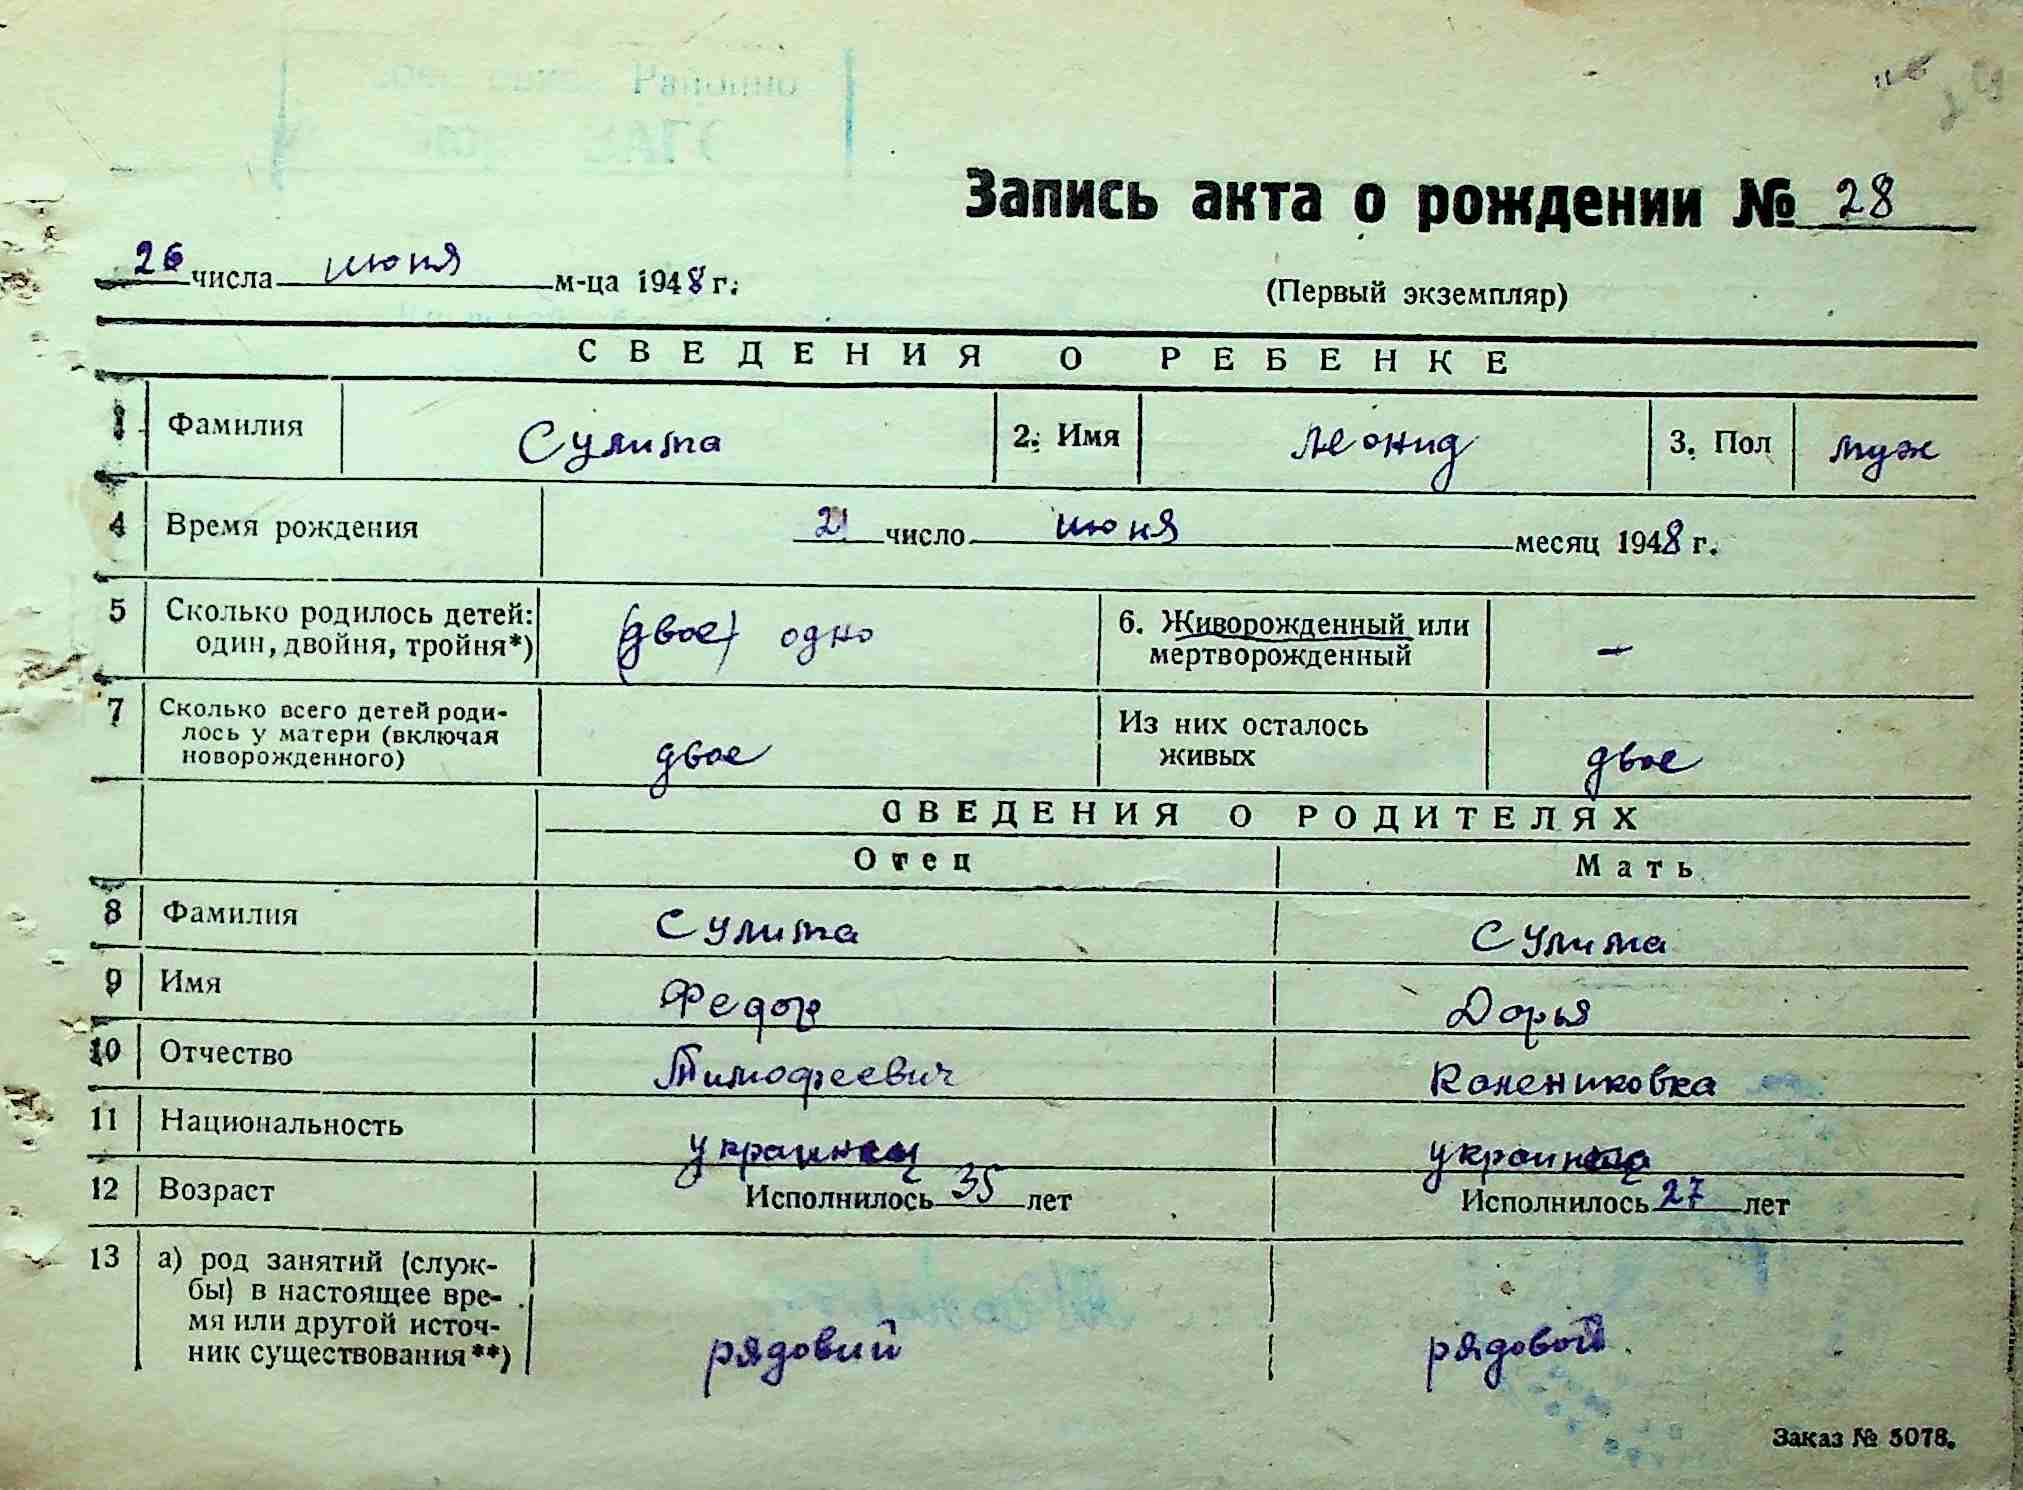 Запись акта о рождении № 28
26 числа июня м-ца 1948 г.
(Первый экземпляр)
СВЕДЕНИЯ О РЕБЕНКЕ
1 Фамилия Сулима 2. Имя Леонид 3. Пол муж
4 Время рождения 21 число июня месяц 1948 г.
5 Сколько родилось детей: один, двойня, тройня*) (двое) одно 6. Живорожденный или мертворожденный —
7 Сколько всего детей роди-
лось у матери (включая
новорожденного) двое Из них осталось живых двое
СВЕДЕНИЯ О РОДИТЕЛЯХ
Отец Мать
8 Фамилия Сулима Сулима
9 Имя Федор Дорья
10 Отчество Тимофеевич Калениковка
11 Национальность украинец украинка
12 Возраст Исполнилось 35 лет Исполнилось 27 лет
13 а) род занятий (служ-
бы) в настоящее вре-
мя или другой источ-
ник существования**) рядовий рядовой
Заказ № 5078.